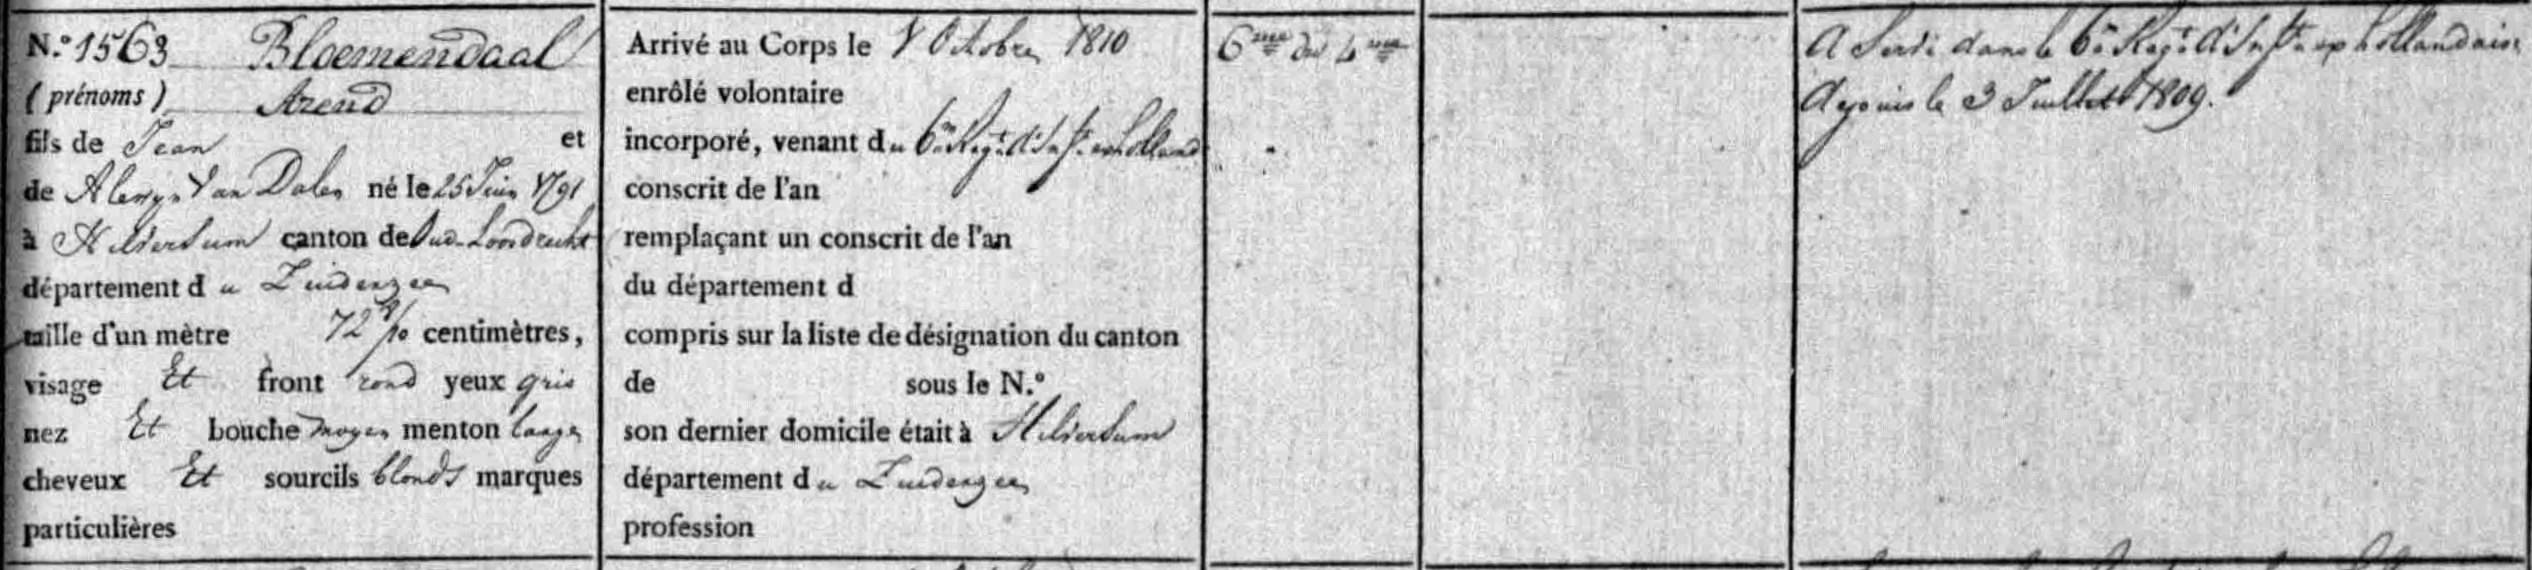 N.º 1563 Bloemendaal
(prénoms) Arend
fils de Jean et
de Alewyn Van Dalen né le 25 Juin 1791
à Hilversum canton de Oud-Loosdrecht
département du Zuiderzee
taille d'un mètre 72 8/10 centimètres,
visage Et front rond yeux gris
nez Et bouche moyen menton large
cheveux Et sourcils blonds marques
particulières
Arrivé au Corps le 1 Octobre 1810
enrôlé volontaire
incorporé, venant du 6e Regt d'Infie ex holland
conscrit de l'an
remplaçant un conscrit de l'an
du département d
compris sur la liste de désignation du canton
de sous le N.º
son dernier domicile était à Hilversum
département du Zuiderzee
profession
6me du 4me
A Servi dans le 6e Regt d'Infie ex hollandaise
depuis le 3 Juillet 1809.